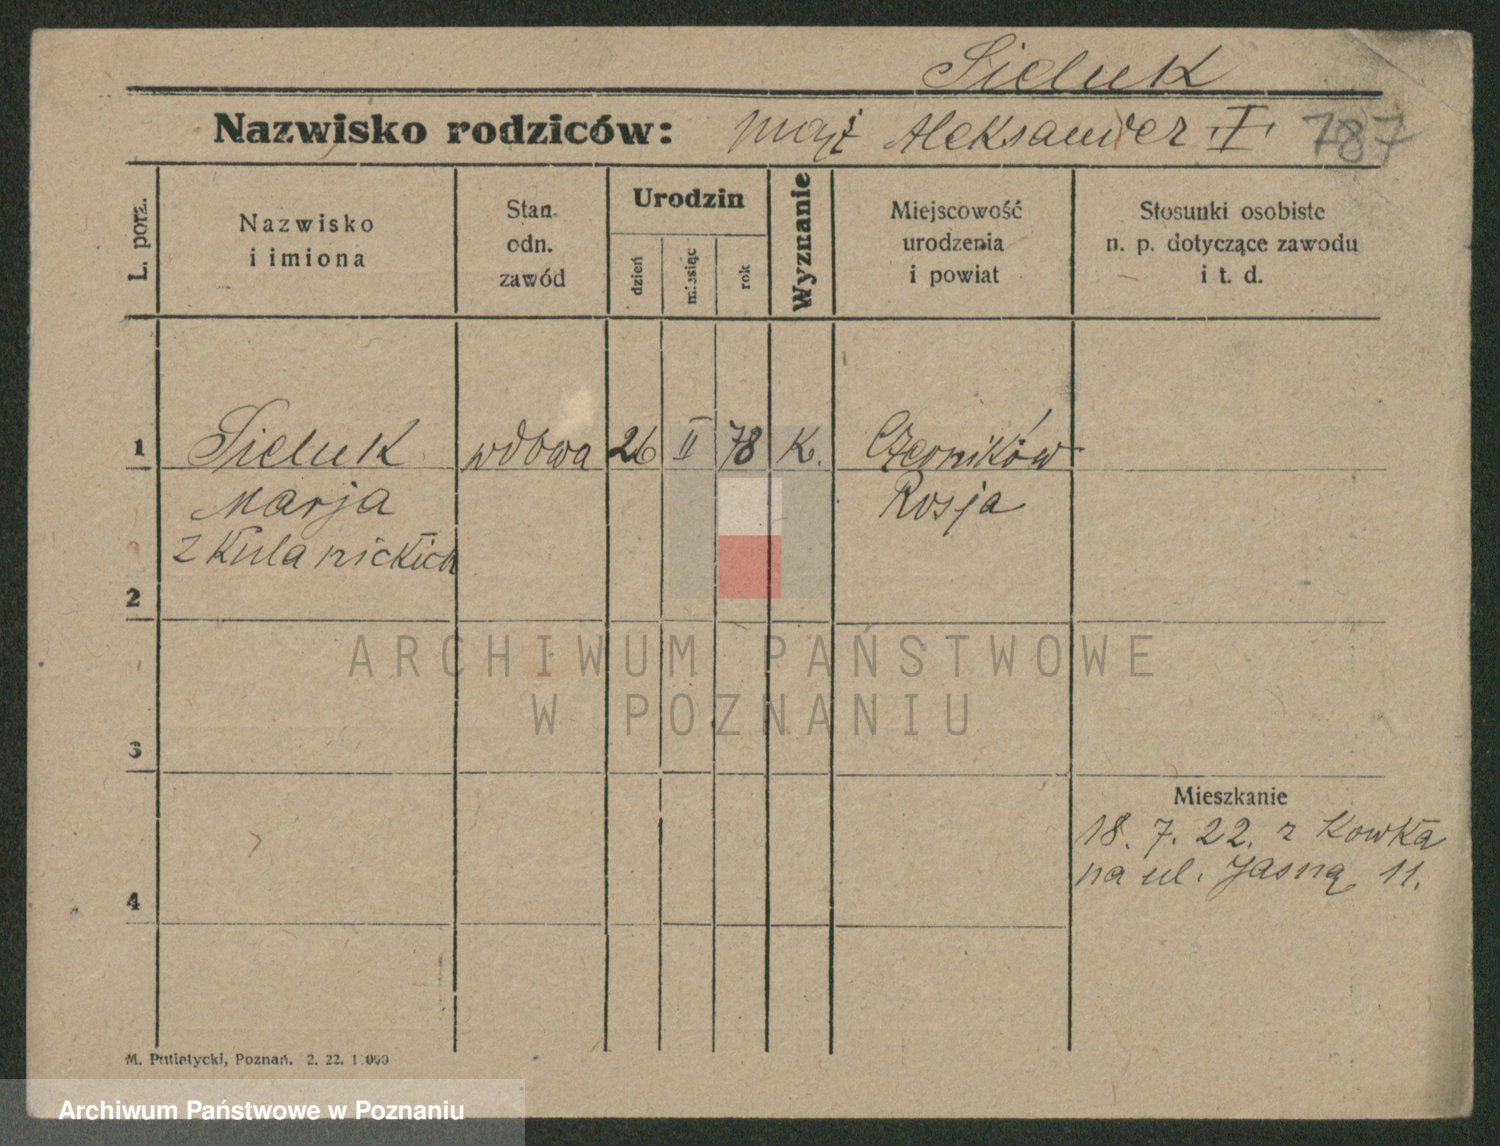 Sieluk
Nazwisko rodziców: mąż Aleksander I 787
L. porz.
Nazwisko
i imiona
Stan
odn.
zawód
Urodzin
dzień
miesiąc
rok
Wyznanie
Miejscowość
urodzenia
i powiat
Stosunki osobiste
n. p. dotyczące zawodu
i t. d.
1 Sieluk wdowa 26 II 78 K. Czerników
Marja Rosja
z Kulanickich
2
ARCHIWUM PAŃSTWOWE
W POZNANIU
3
Mieszkanie
18. 7. 22. z Kowka
na ul. Jasną 11.
4
M. Putiatycki, Poznań. 2. 22.
Archiwum Państwowe w Poznaniu